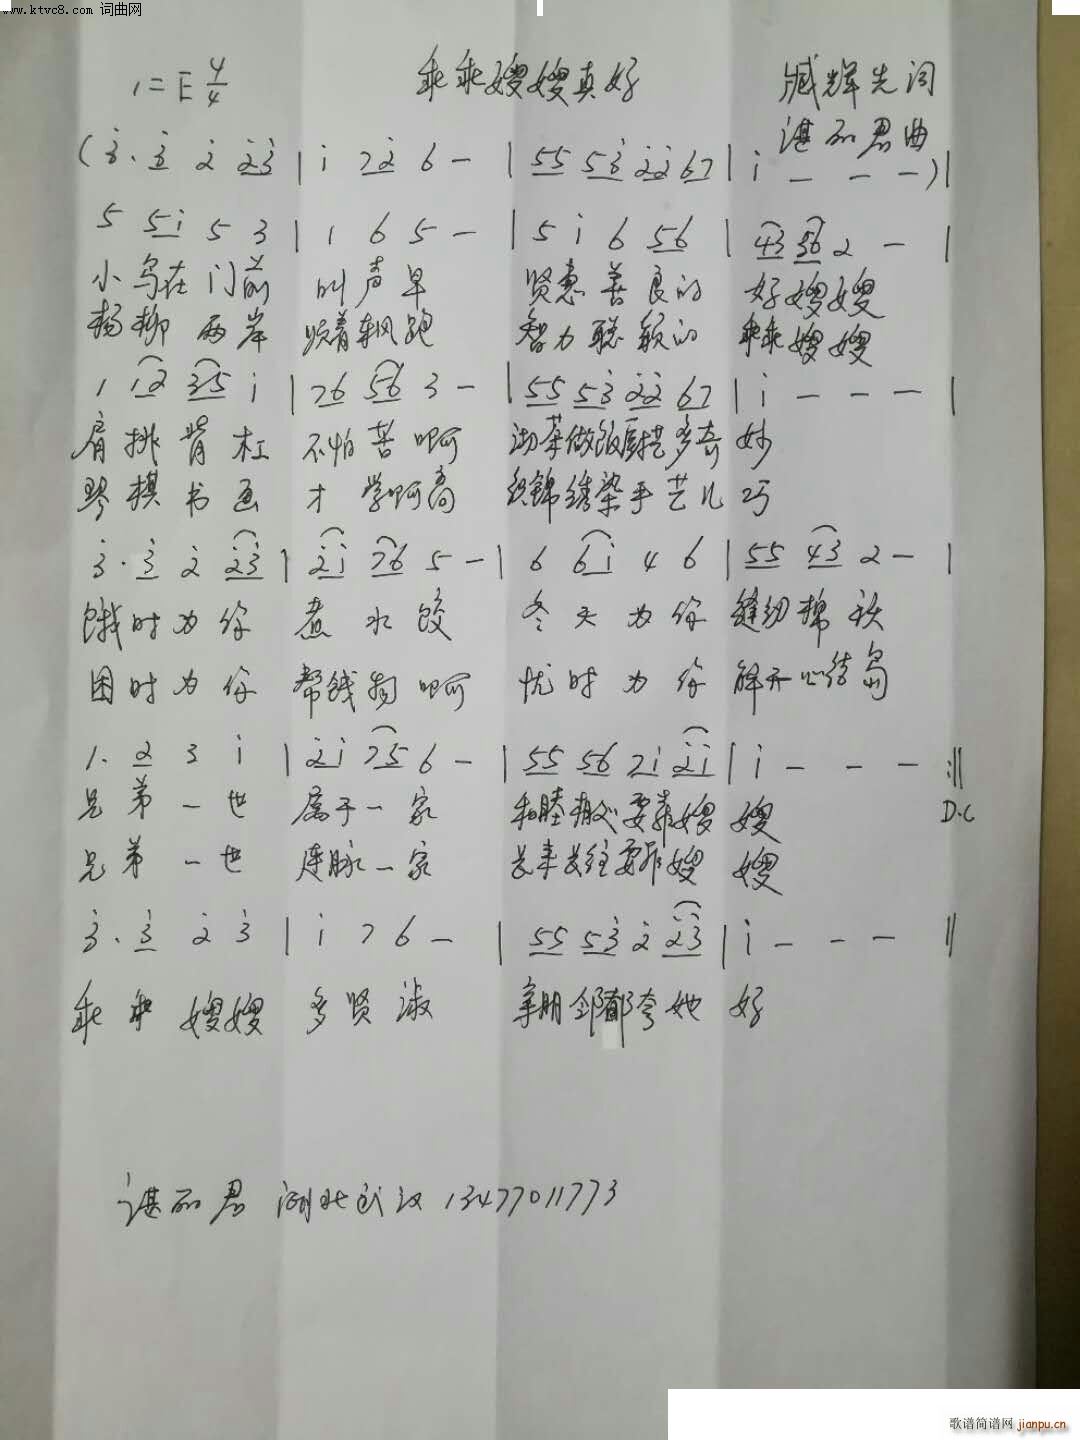 www.ktvc8.com 词曲网
1=E 4/4 乖乖嫂嫂真好 臧辉先词
谌丽君曲
(3̇. 3̇ 2̇ 2̇3̇ | i 72̇ 6 — | 55 53̇ 2̇2̇ 67 | i — — —)|
5 5i 5 3 | 1 6 5 — | 5 i 6 56 | 43 56 2 — |
小鸟在门前 叫声早 贤惠善良的 好嫂嫂
杨柳两岸 随着轨跑 智力聪颖的 乖乖嫂嫂
1 12 35 i | 76 56 3 — | 55 53̇ 2̇2̇ 67 | i — — — |
肩挑背杠 不怕苦啊 做饭 多奇 妙
琴棋书画 才学啊高 织锦绣染手艺儿 巧
3̇. 3̇ 2̇ 2̇3̇ | 2̇i 76 5 — | 6 6i 4 6 | 55 43 2 — |
饿时为你 煮水饺 冬天为你 缝纫棉袄
困时为你 帮钱物啊 忧时为你 解开心结
1. 2 3 i | 2̇i 75 6 — | 55 56 7i 2̇i | i — — — :||
兄弟一世 属于一家 和睦 要靠嫂 嫂 D.C
兄弟一世 连脉一家 长来长往要靠嫂 嫂
3̇. 3̇ 2̇ 3̇ | i 7 6 — | 55 53̇ 2̇ 2̇3̇ | i — — — ||
乖乖嫂嫂 多贤淑 亲朋邻都夸她 好
谌丽君 湖北武汉 13477011773
歌谱简谱网 jianpu.cn